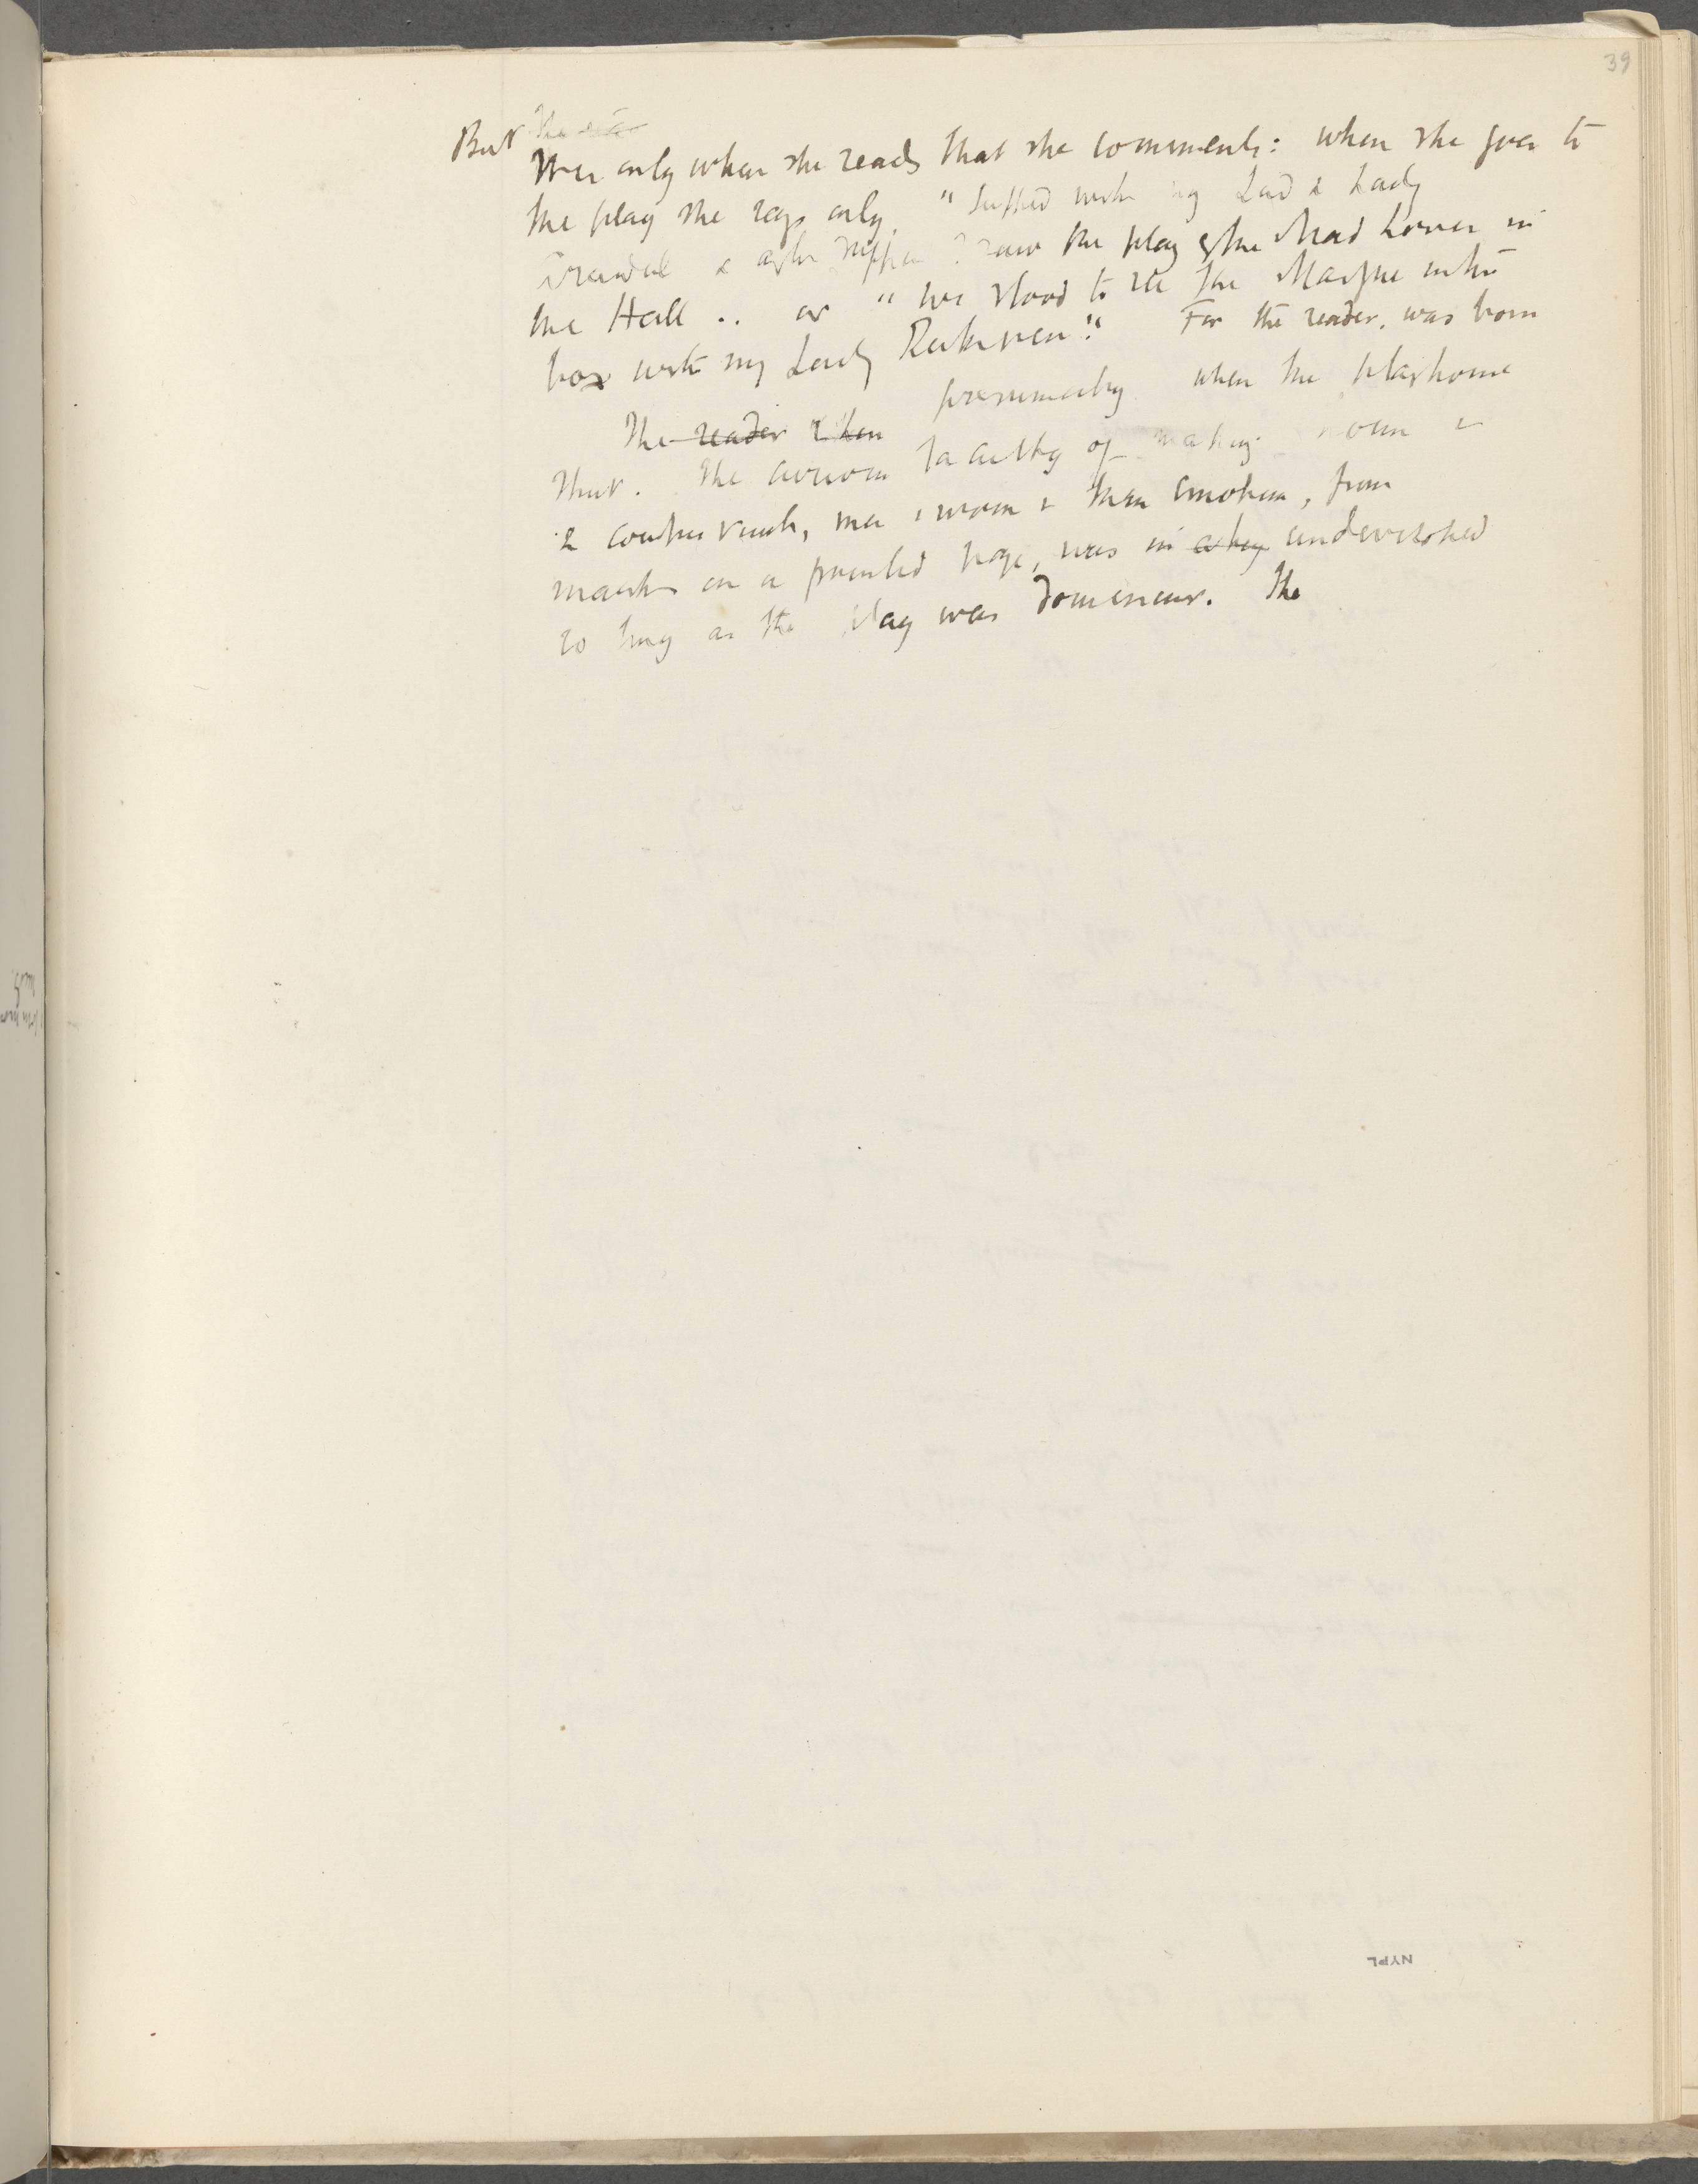 39
The rea
But It is only when she reads that she comments: when she goes to
the play she says only, "Supped with my Lord & Lady
Arundel & after supper I saw the play of the Mad Lover in
the Hall .. or "we stood to see the Masque in the
box with my Lady Ruthven." For the reader, was born
The reader then presumably when the playhouse
shut. The curious faculty of making house &
& countryside, men & women & their emotions, from
marks on a printed page, was in undeveloped
so long as the play was dominant. The
NYPL